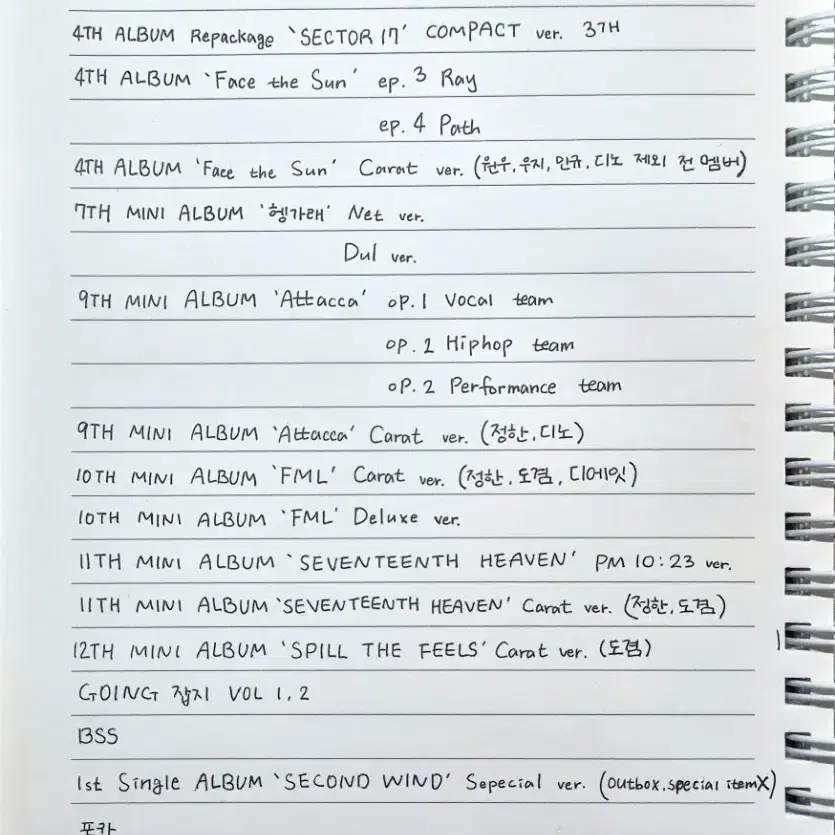 4TH ALBUM Repackage 'SECTOR 17' COMPACT ver. 3개
4TH ALBUM 'Face the Sun' ep. 3 Ray
ep. 4 Path
4TH ALBUM 'Face the Sun' Carat ver. (원우, 우지, 민규, 디노 제외 전 멤버)
7TH MINI ALBUM '헹가래' Net ver.
Dul ver.
9TH MINI ALBUM 'Attacca' op. 1 Vocal team
op. 2 Hiphop team
op. 2 Performance team
9TH MINI ALBUM 'Attacca' Carat ver. (정한, 디노)
10TH MINI ALBUM 'FML' Carat ver. (정한, 도겸, 디에잇)
10TH MINI ALBUM 'FML' Deluxe ver.
11TH MINI ALBUM 'SEVENTEENTH HEAVEN' PM 10:23 ver.
11TH MINI ALBUM 'SEVENTEENTH HEAVEN' Carat ver. (정한, 도겸)
12TH MINI ALBUM 'SPILL THE FEELS' Carat ver. (도겸)
GOING 잡지 VOL 1, 2
BSS
1st Single ALBUM 'SECOND WIND' Sepecial ver. (outbox, special item X)
포카